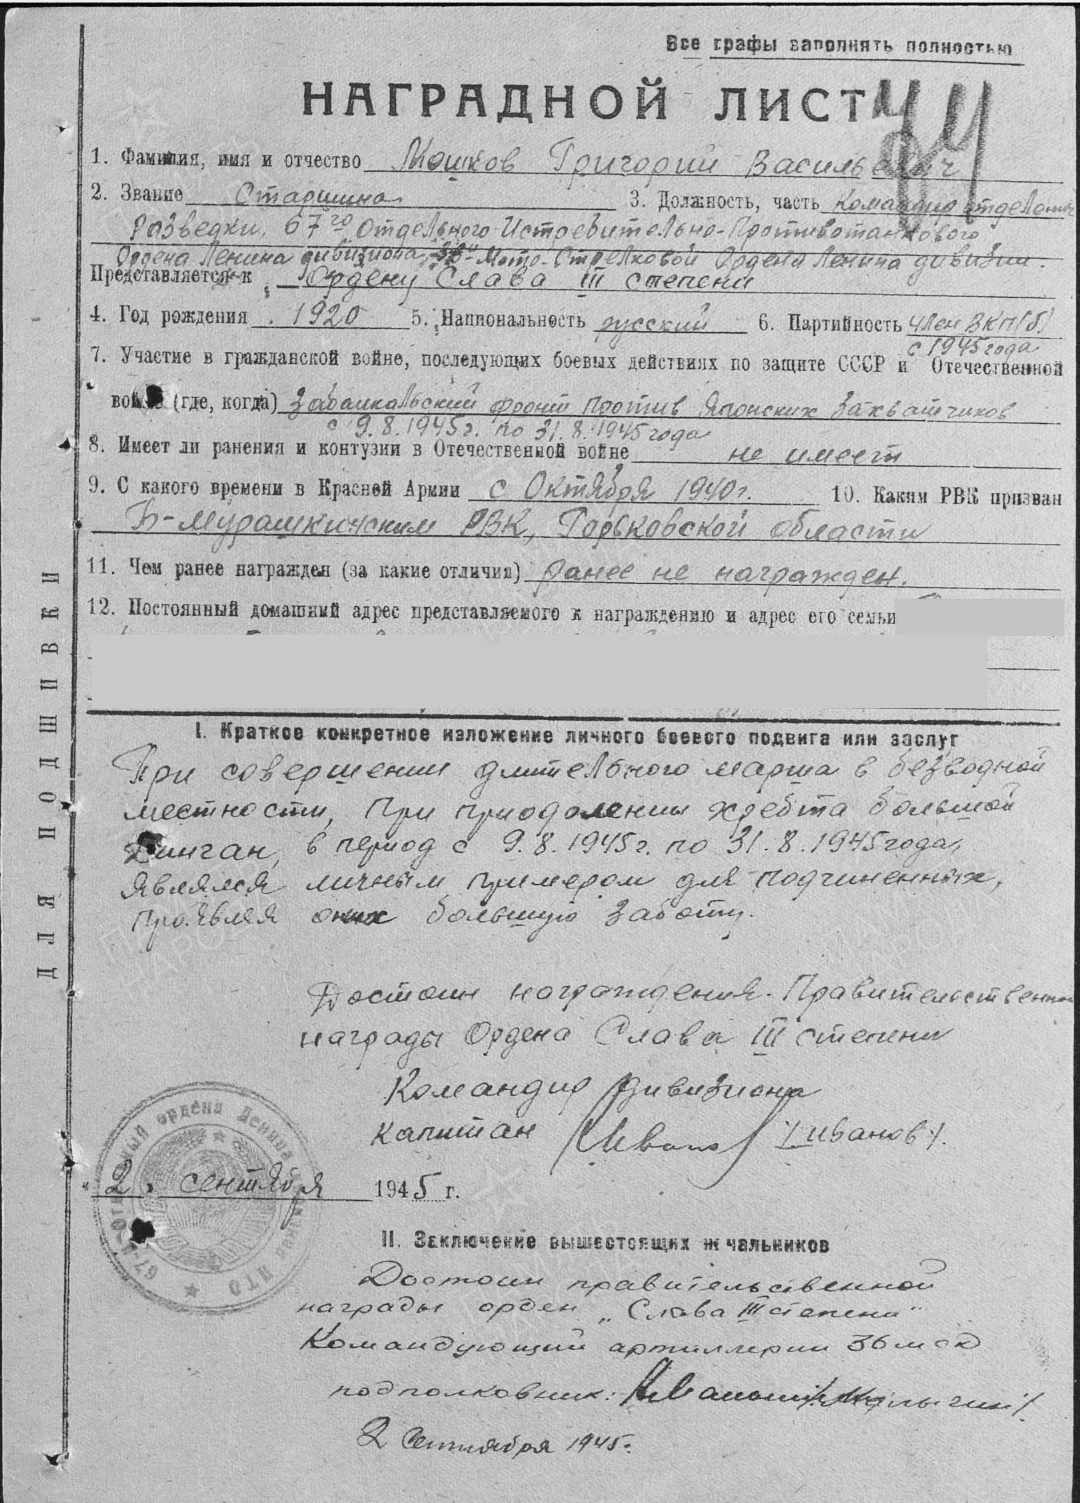 Все графы заполнять полностью
НАГРАДНОЙ ЛИСТ
1. Фамилия, имя и отчество Мошков Григорий Васильевич
2. Звание Старшина 3. Должность, часть Командир отделения
разведки, 67го Отдельного Истребительно-Противотанкового
Ордена Ленина дивизиона, "36" Мото-Стрелковой Ордена Ленина дивизии.
Представляется к Ордену Слава III степени
4. Год рождения 1920 5. Национальность русский 6. Партийность член ВКП(б)
с 1945 года
7. Участие в гражданской войне, последующих боевых действиях по защите СССР и Отечественной
войне (где, когда) Забайкальский фронт против Японских Захватчиков
с 9.8.1945г. по 31.8.1945 года
8. Имеет ли ранения и контузии в Отечественной войне не имеет
9. С какого времени в Красной Армии с Октября 1940г. 10. Каким РВК призван
Б-Мурашкинским РВК, Горьковской области
11. Чем ранее награжден (за какие отличия) ранее не награжден.
12. Постоянный домашний адрес представляемого к награждению и адрес его семьи
I. Краткое конкретное изложение личного боевого подвига или заслуг
При совершении длительного марша в безводной
местности, при приодолении хребта большой
Хинган, в период с 9.8.1945г. по 31.8.1945 года,
являлся личным примером для подчиненных,
проявляя о них большую заботу.
Достоин награждения. Правительственной
награды Ордена Слава III степени
Командир дивизиона
Капитан /Иванов/.
"2" сентября 1945 г.
II. Заключение вышестоящих начальников
Достоин правительственной
награды орден "Слава III степени"
Командующий артиллерии 36 мсд
подполковник:
2 Сентября 1945г.
ДЛЯ ПОДШИВКИ